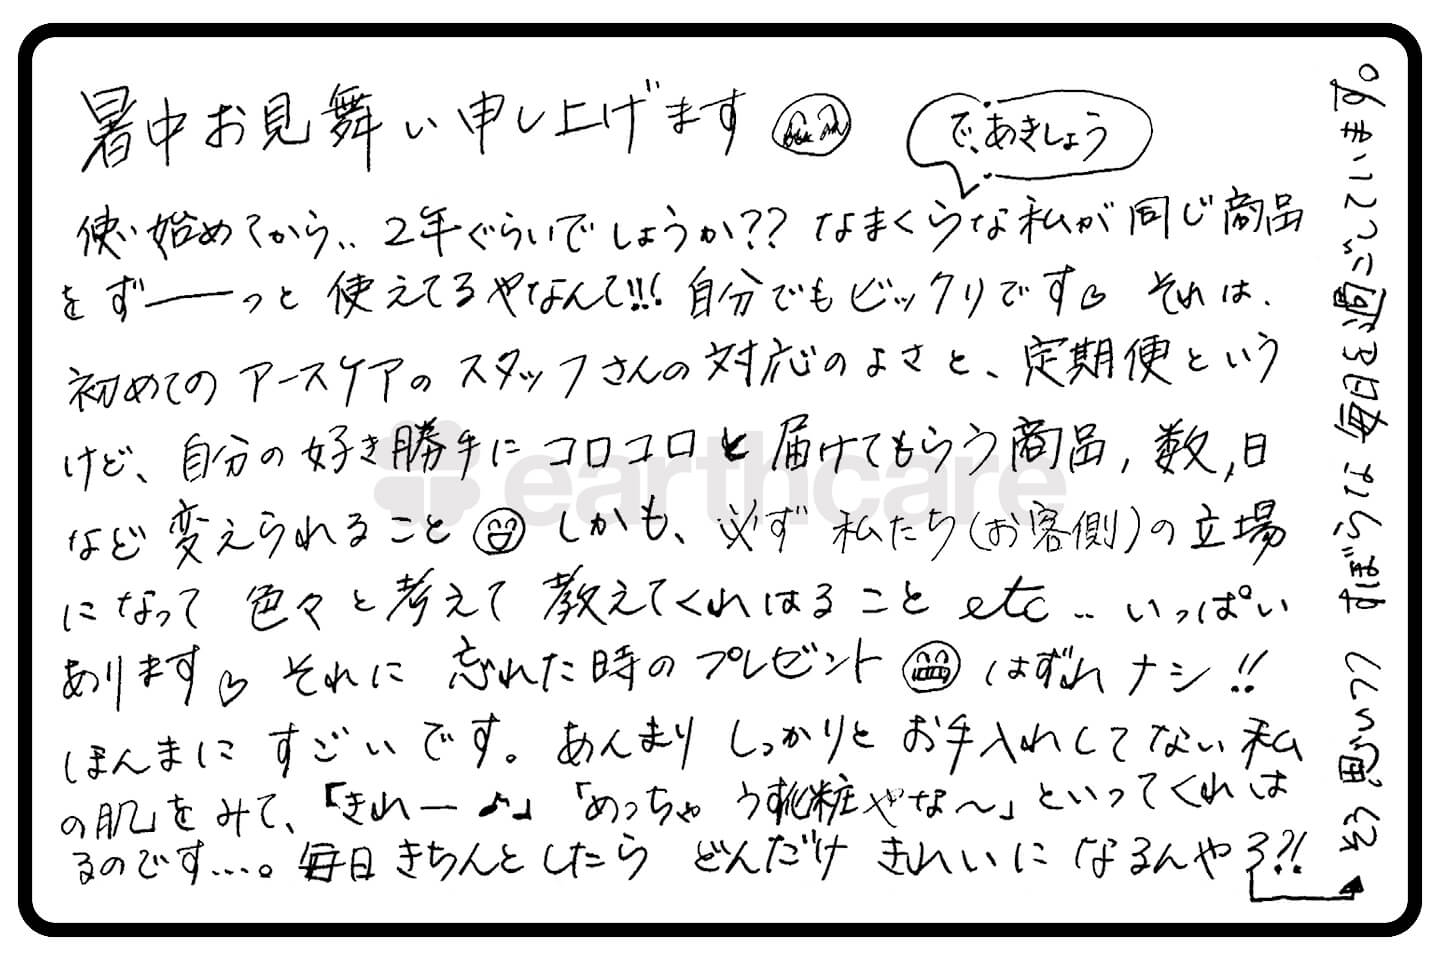 暑中お見舞い申し上げます
で、あきしょう
使い始めてから、、2年ぐらいでしょうか?? なまくらな私が同じ商品
をずーーっと使えてるやなんて!!! 自分でもビックリです♡ それは、
初めてのアースケアのスタッフさんの対応のよさと、定期便という
けど、自分の好き勝手にコロコロと届けてもらう商品,数,日
など変えられること しかも、必ず私たち(お客側)の立場
になって色々と考えて教えてくれはること etc.. いっぱい
あります♡ それに忘れた時のプレゼント はずれナシ!!
ほんまにすごいです。あんまりしっかりとお手入れしてない私
の肌をみて、「きれー♪」「めっちゃうす化粧やな〜」といってくれは
るのです...。毎日きちんとしたらどんだけきれいになるんやろ?!
そう思いつつ ずぼらな毎日過ごしています。
earthcare